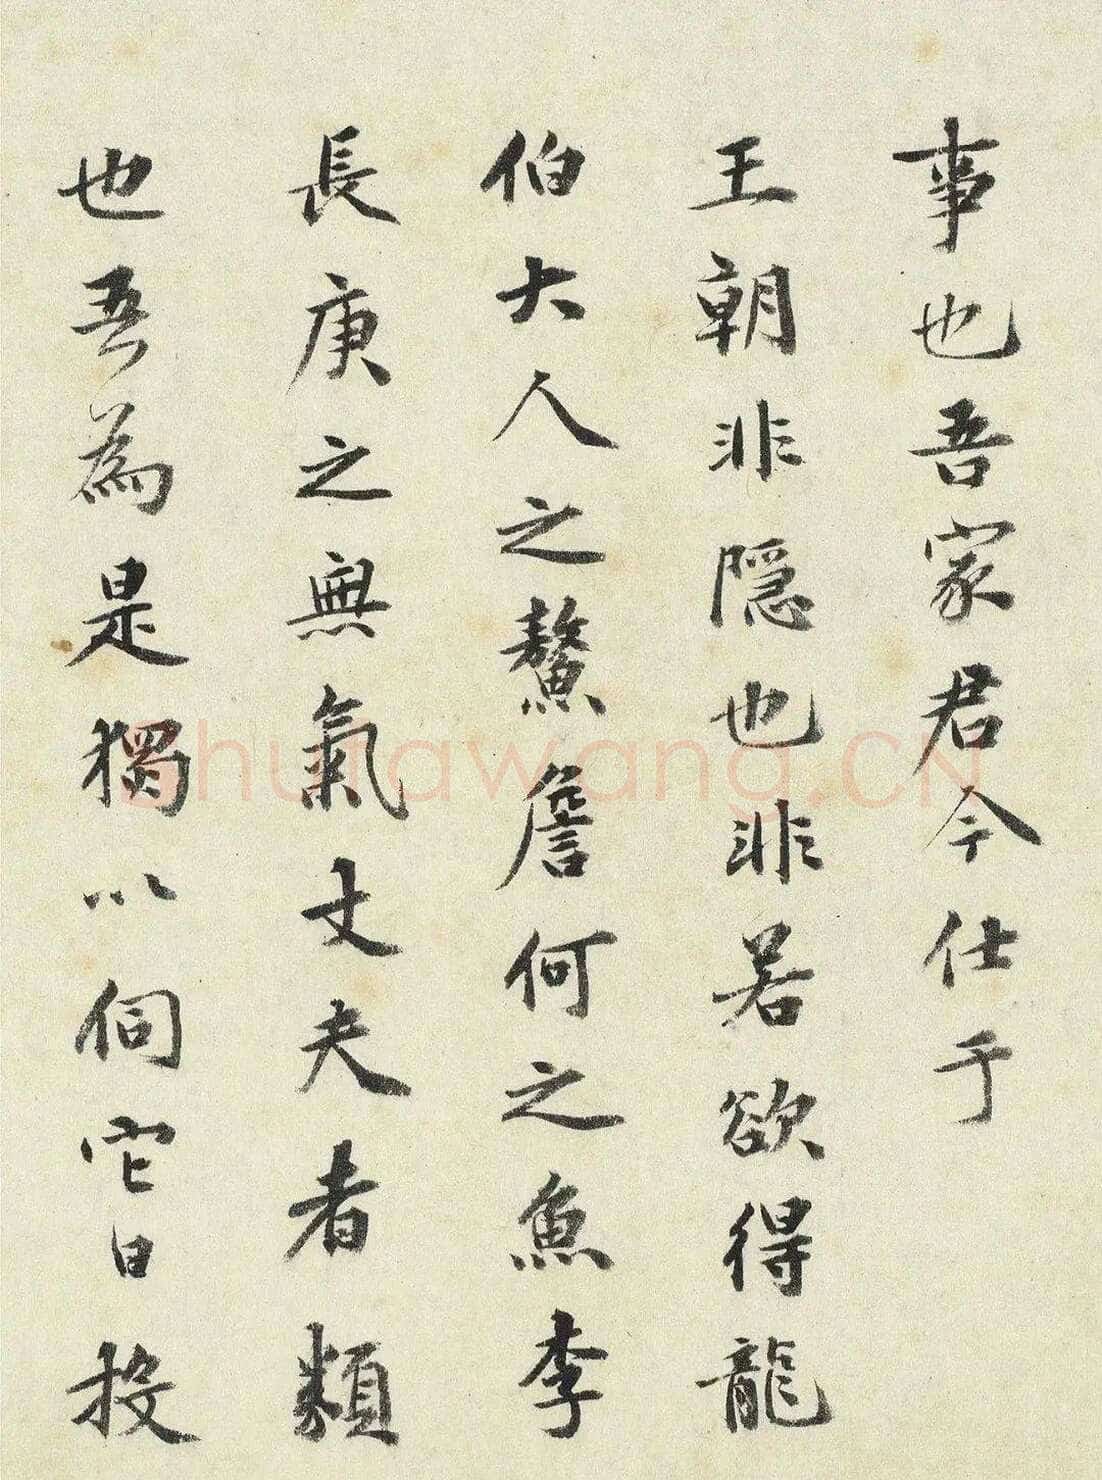 事也吾家君今仕于
王朝非隱也非若欲得龍
伯大人之鰲詹何之魚李
長庚之無氣丈夫者類
也吾為是獨以伺它日投
Shufawang.CN